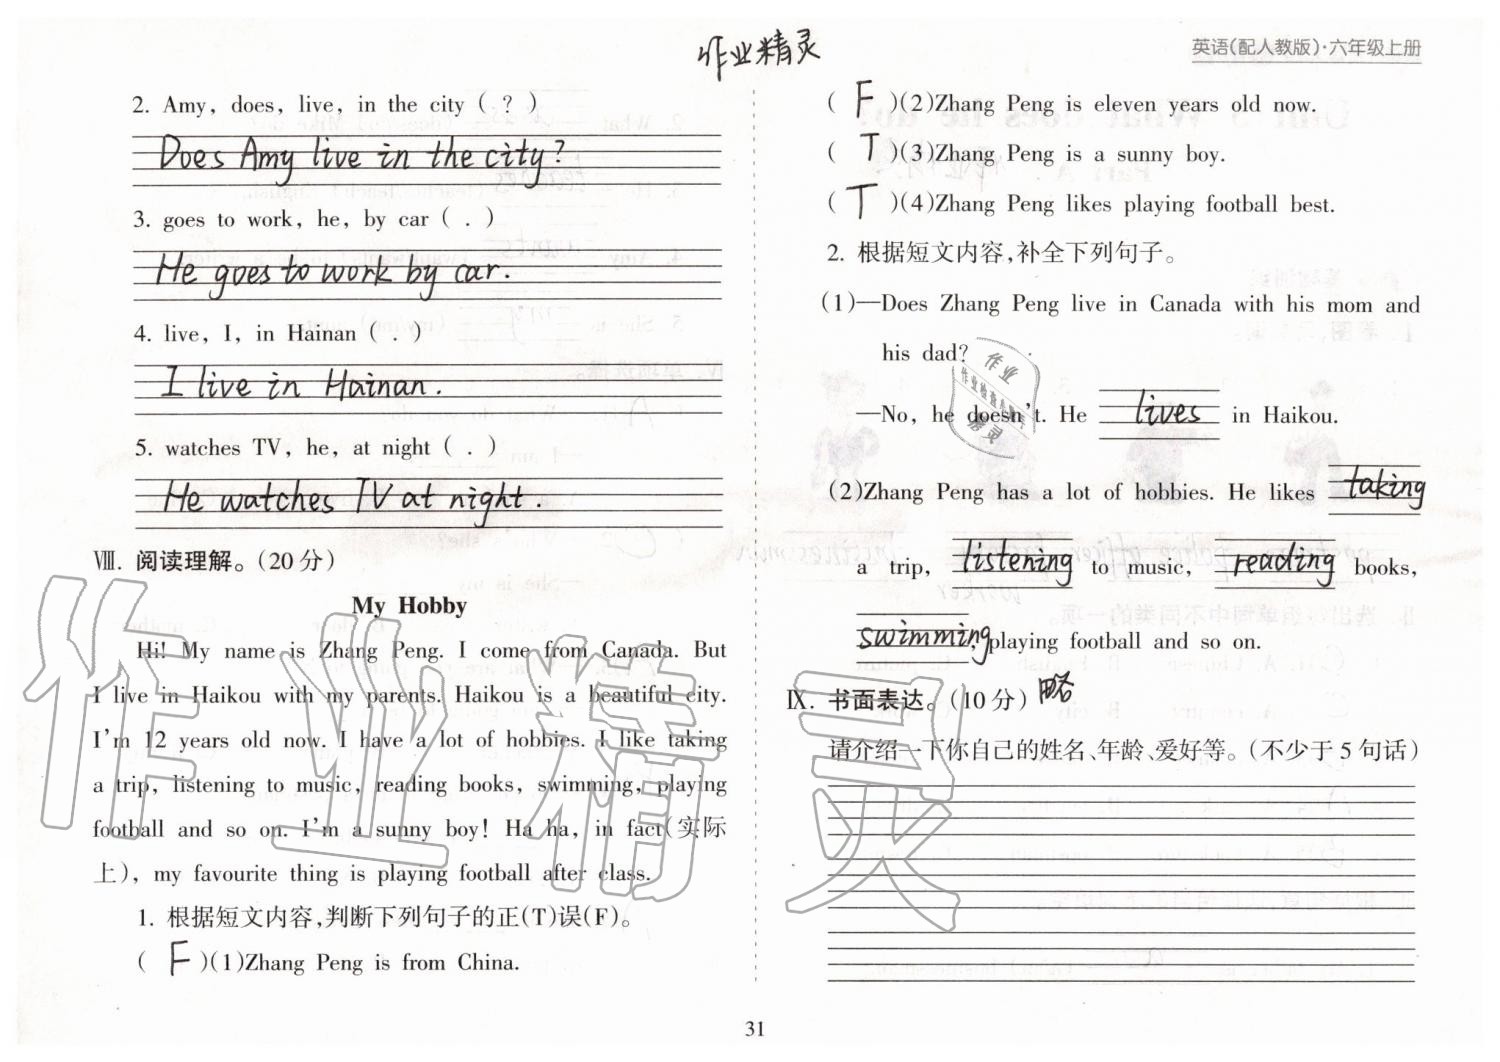 作业精灵
英语(配人教版)·六年级上册
2. Amy, does, live, in the city ( ? )
Does Amy live in the city?
3. goes to work, he, by car ( . )
He goes to work by car.
4. live, I, in Hainan ( . )
I live in Hainan.
5. watches TV, he, at night ( . )
He watches TV at night.
Ⅷ. 阅读理解。(20分)
My Hobby
Hi! My name is Zhang Peng. I come from Canada. But
I live in Haikou with my parents. Haikou is a beautiful city.
I'm 12 years old now. I have a lot of hobbies. I like taking
a trip, listening to music, reading books, swimming, playing
football and so on. I'm a sunny boy! Ha ha, in fact(实际
上), my favourite thing is playing football after class.
1. 根据短文内容,判断下列句子的正(T)误(F)。
( F )(1)Zhang Peng is from China.
( F )(2)Zhang Peng is eleven years old now.
( T )(3)Zhang Peng is a sunny boy.
( T )(4)Zhang Peng likes playing football best.
2. 根据短文内容,补全下列句子。
(1)—Does Zhang Peng live in Canada with his mom and
his dad?
—No, he doesn't. He lives in Haikou.
(2)Zhang Peng has a lot of hobbies. He likes taking
a trip, listening to music, reading books,
swimming, playing football and so on.
Ⅸ. 书面表达。(10分) 略
请介绍一下你自己的姓名、年龄、爱好等。(不少于5句话)
31
作业精灵